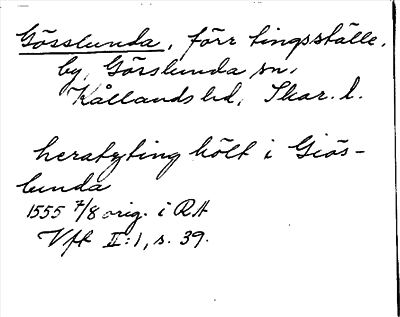 Gösslunda, förr tingsställe,
by, Görslunda sn,
Kållands hd, Skar. l.
heratzting hölt i Giös-
lunda
1555 7/8 orig. i RA
Vft II:1, s. 39.